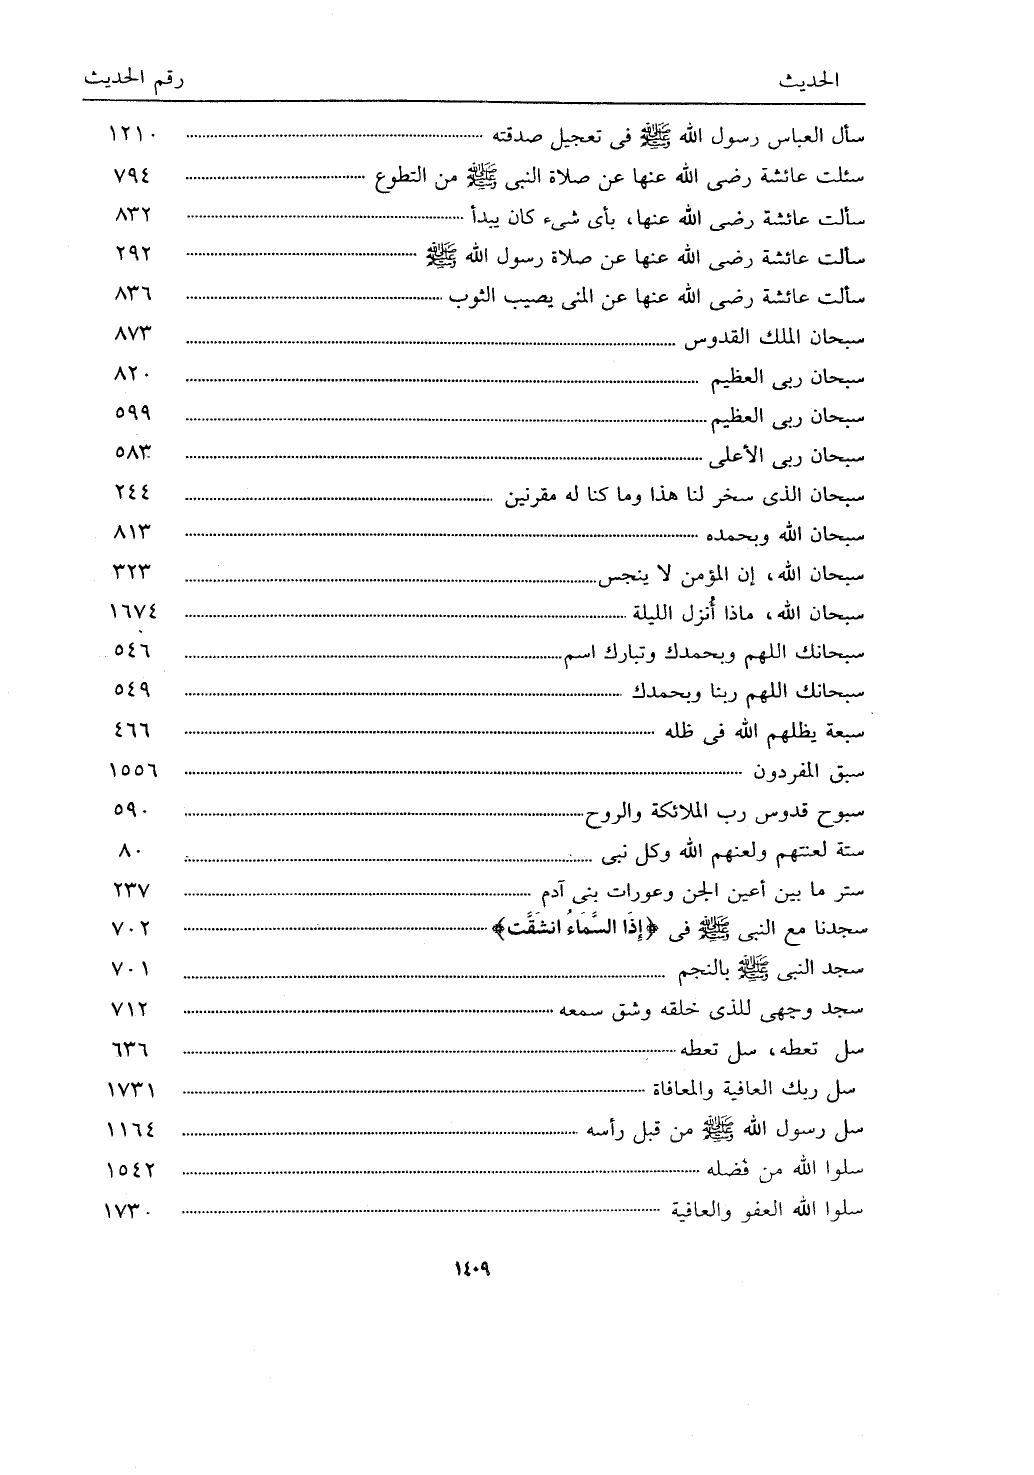 الحديث رقم الحديث
سأل العباس رسول الله ﷺ فى تعجيل صدقته ١٢١٠
سئلت عائشة رضى الله عنها عن صلاة النبى ﷺ من التطوع ٧٩٤
سألت عائشة رضى الله عنها، بأى شىء كان يبدأ ٨٣٢
سألت عائشة رضى الله عنها عن صلاة رسول الله ﷺ ٢٩٢
سألت عائشة رضى الله عنها عن المنى يصيب الثوب ٨٣٦
سبحان الملك القدوس ٨٧٣
سبحان ربى العظيم ٨٢٠
سبحان ربى العظيم ٥٩٩
سبحان ربى الأعلى ٥٨٣
سبحان الذى سخر لنا هذا وما كنا له مقرنين ٢٤٤
سبحان الله وبحمده ٨١٣
سبحان الله، إن المؤمن لا ينجس ٣٢٣
سبحان الله، ماذا أُنزل الليلة ١٦٧٤
سبحانك اللهم وبحمدك وتبارك اسم ٥٤٦
سبحانك اللهم ربنا وبحمدك ٥٤٩
سبعة يظلهم الله فى ظله ٤٦٦
سبق المفردون ١٥٥٦
سبوح قدوس رب الملائكة والروح ٥٩٠
ستة لعنتهم ولعنهم الله وكل نبى ٨٠
ستر ما بين أعين الجن وعورات بنى آدم ٢٣٧
سجدنا مع النبى ﷺ فى ﴿إِذَا السَّمَاءُ انشَقَّت﴾ ٧٠٢
سجد النبى ﷺ بالنجم ٧٠١
سجد وجهى للذى خلقه وشق سمعه ٧١٢
سل تعطه، سل تعطه ٦٣٦
سل ربك العافية والمعافاة ١٧٣١
سل رسول الله ﷺ من قبل رأسه ١١٦٤
سلوا الله من فضله ١٥٤٢
سلوا الله العفو والعافية ١٧٣٠
١٤٠٩